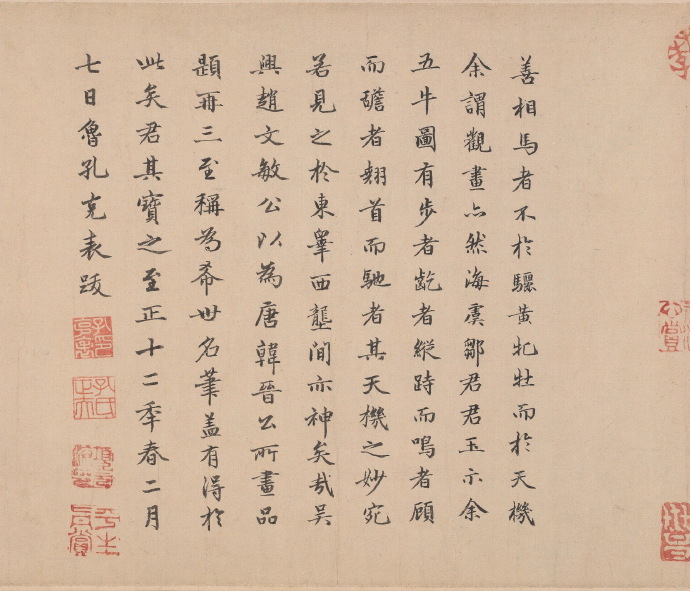 善相馬者不於驪黃牝牡而於天機
余謂觀畫亦然海虞鄒君君玉示余
五牛圖有步者齕者縱跱而鳴者顧
而䑛者翹首而馳者其天機之妙宛
若見之於東皐西壟間亦神矣哉吳
興趙文敏公以為唐韓晉公所畫品
題再三至稱為希世名筆盖有得於
此矣君其寶之至正十二年春二月
七日魯孔克表跋